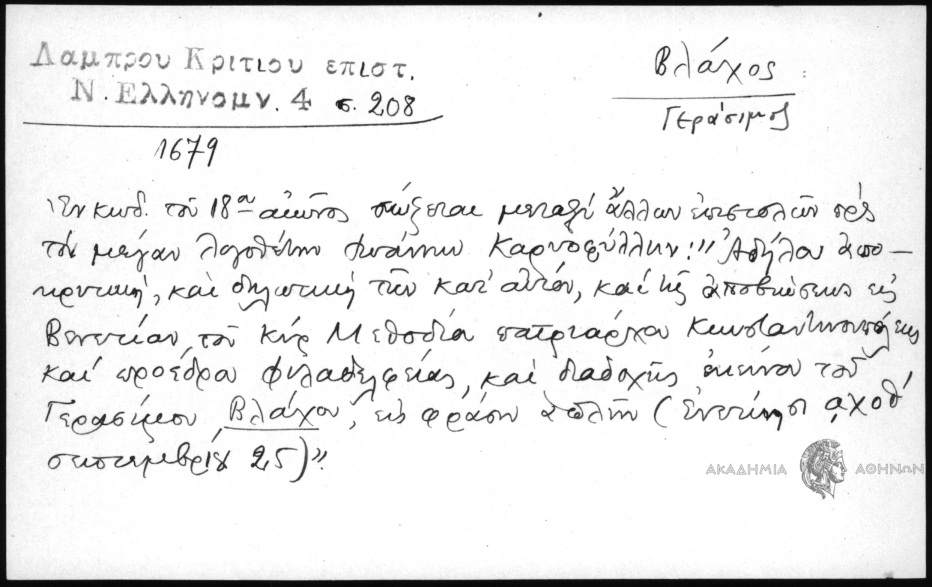 Λαμπρου Κριτιου επιστ.
Ν. Ελληνομν. 4 σ. 208
Βλάχος
Γεράσιμος
1679
Ἐν κωδ. τοῦ 18ου αἰῶνος σώζεται μεταξὺ ἄλλων ἐπιστολῶν πρὸς
τὸν μέγαν λογοθέτην Ἰωάννην Καρυοφύλλην: "Ἀδήλου ἀπο-
κριτική, καὶ δηλωτικὴ τῶν κατ' αὐτόν, καὶ τῆς ἀποβιώσεως εἰς
Βενετίαν τοῦ Κὺρ Μεθοδίου πατριάρχου Κωνσταντινουπόλεως
καὶ προέδρου Φιλαδελφείας, καὶ διαδοχῆς ἐκείνου τοῦ
Γερασίμου Βλάχου, εἰς φράσιν ἁπλῆν (Ἐνετίησι αχοθ'
σεπτεμβρίου 25)".
ΑΚΑΔΗΜΙΑ ΑΘΗΝΩΝ